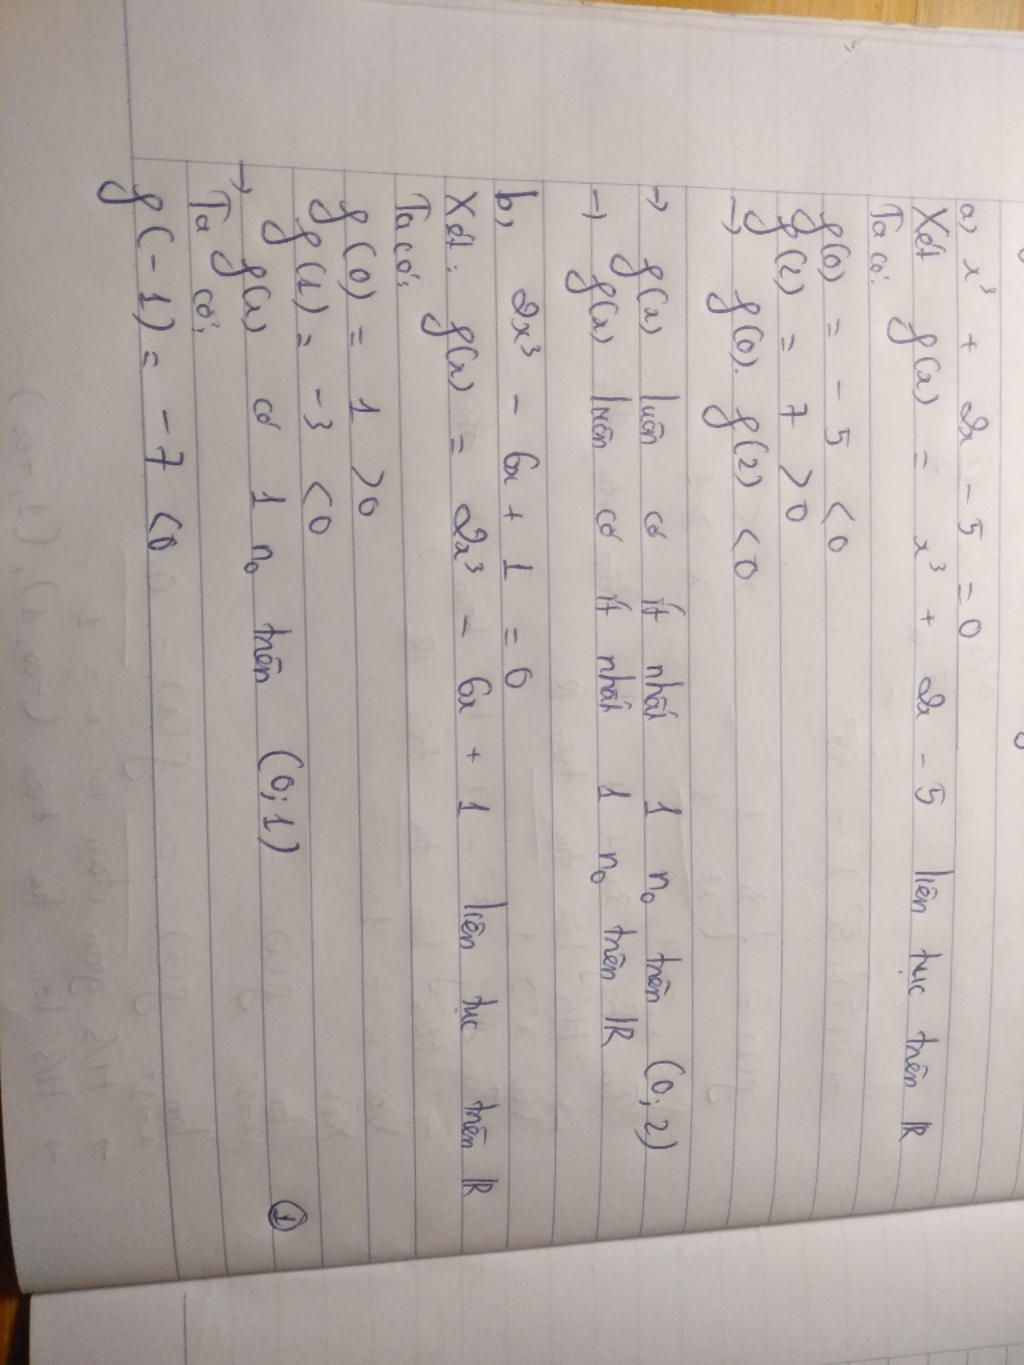 a) x³ + 2x - 5 = 0
Xét f(x) = x³ + 2x - 5 liên tục trên ℝ
Ta có:
f(0) = -5 < 0
f(2) = 7 > 0
→ f(0). f(2) < 0
→ f(x) luôn có ít nhất 1 n₀ trên (0; 2)
→ f(x) luôn có ít nhất 1 n₀ trên ℝ
b) 2x³ - 6x + 1 = 0
Xét: f(x) = 2x³ - 6x + 1 liên tục trên ℝ
Ta có:
f(0) = 1 > 0
f(1) = -3 < 0
→ f(x) có 1 n₀ trên (0; 1) ①
Ta có:
f(-1) = -7 < 0